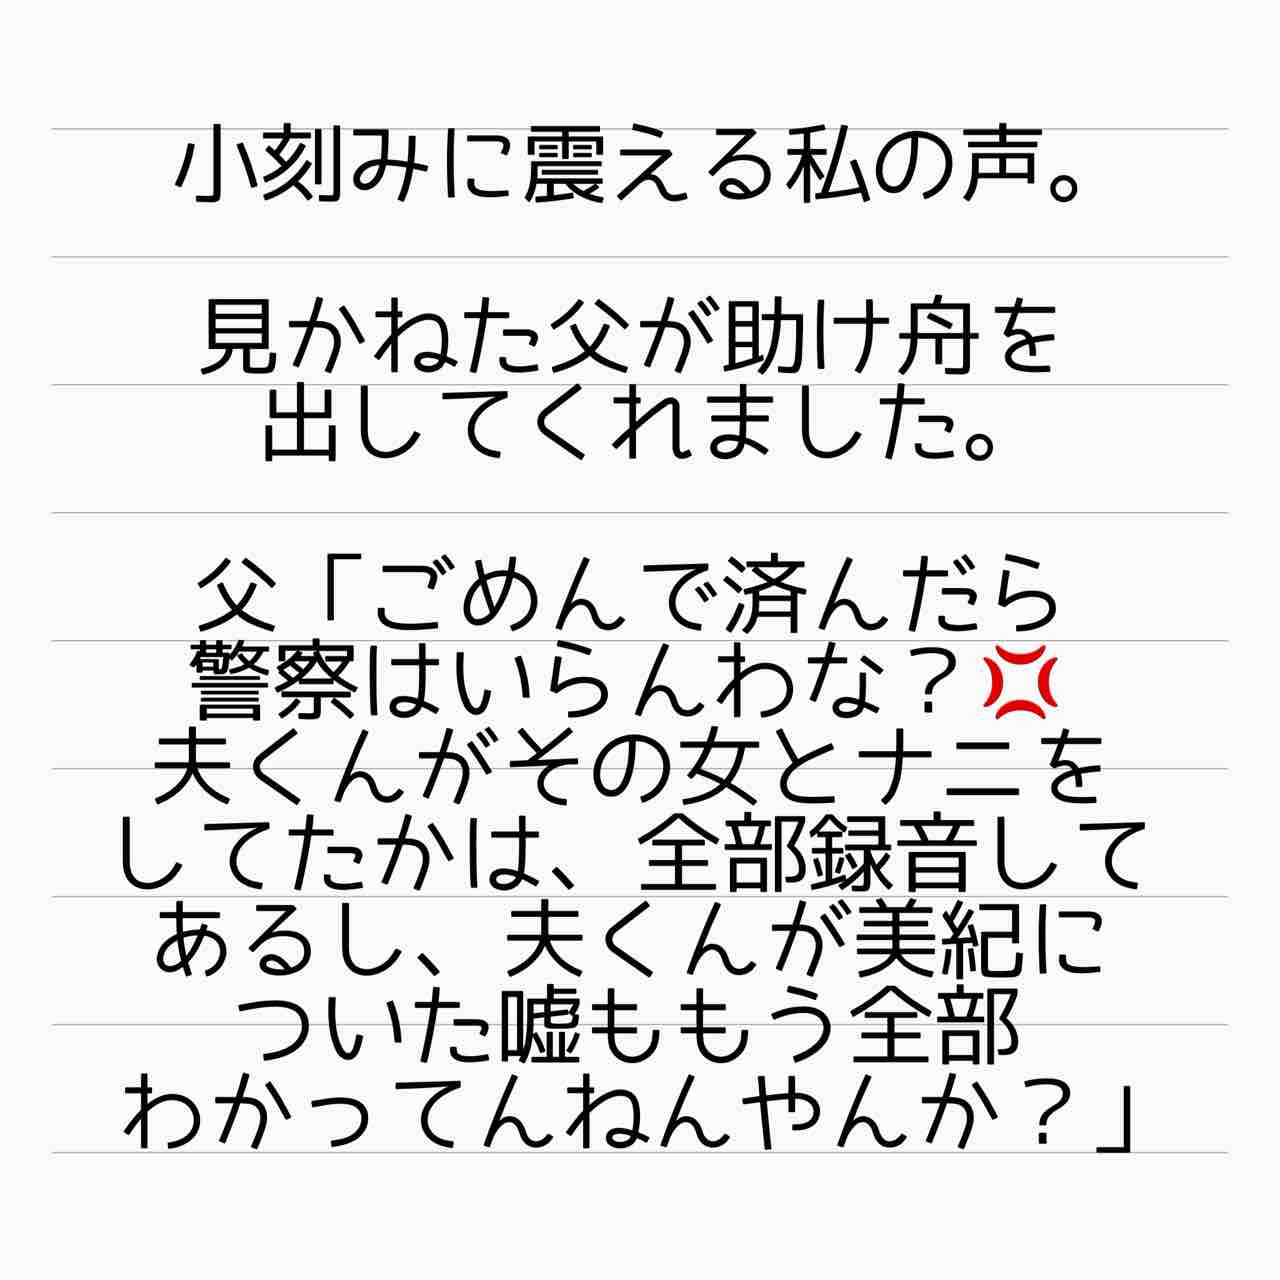 小刻みに震える私の声。
見かねた父が助け舟を
出してくれました。
父「ごめんで済んだら
警察はいらんわな？💢
夫くんがその女とナニを
してたかは、全部録音して
あるし、夫くんが美紀に
ついた嘘ももう全部
わかってんねんやんか？」